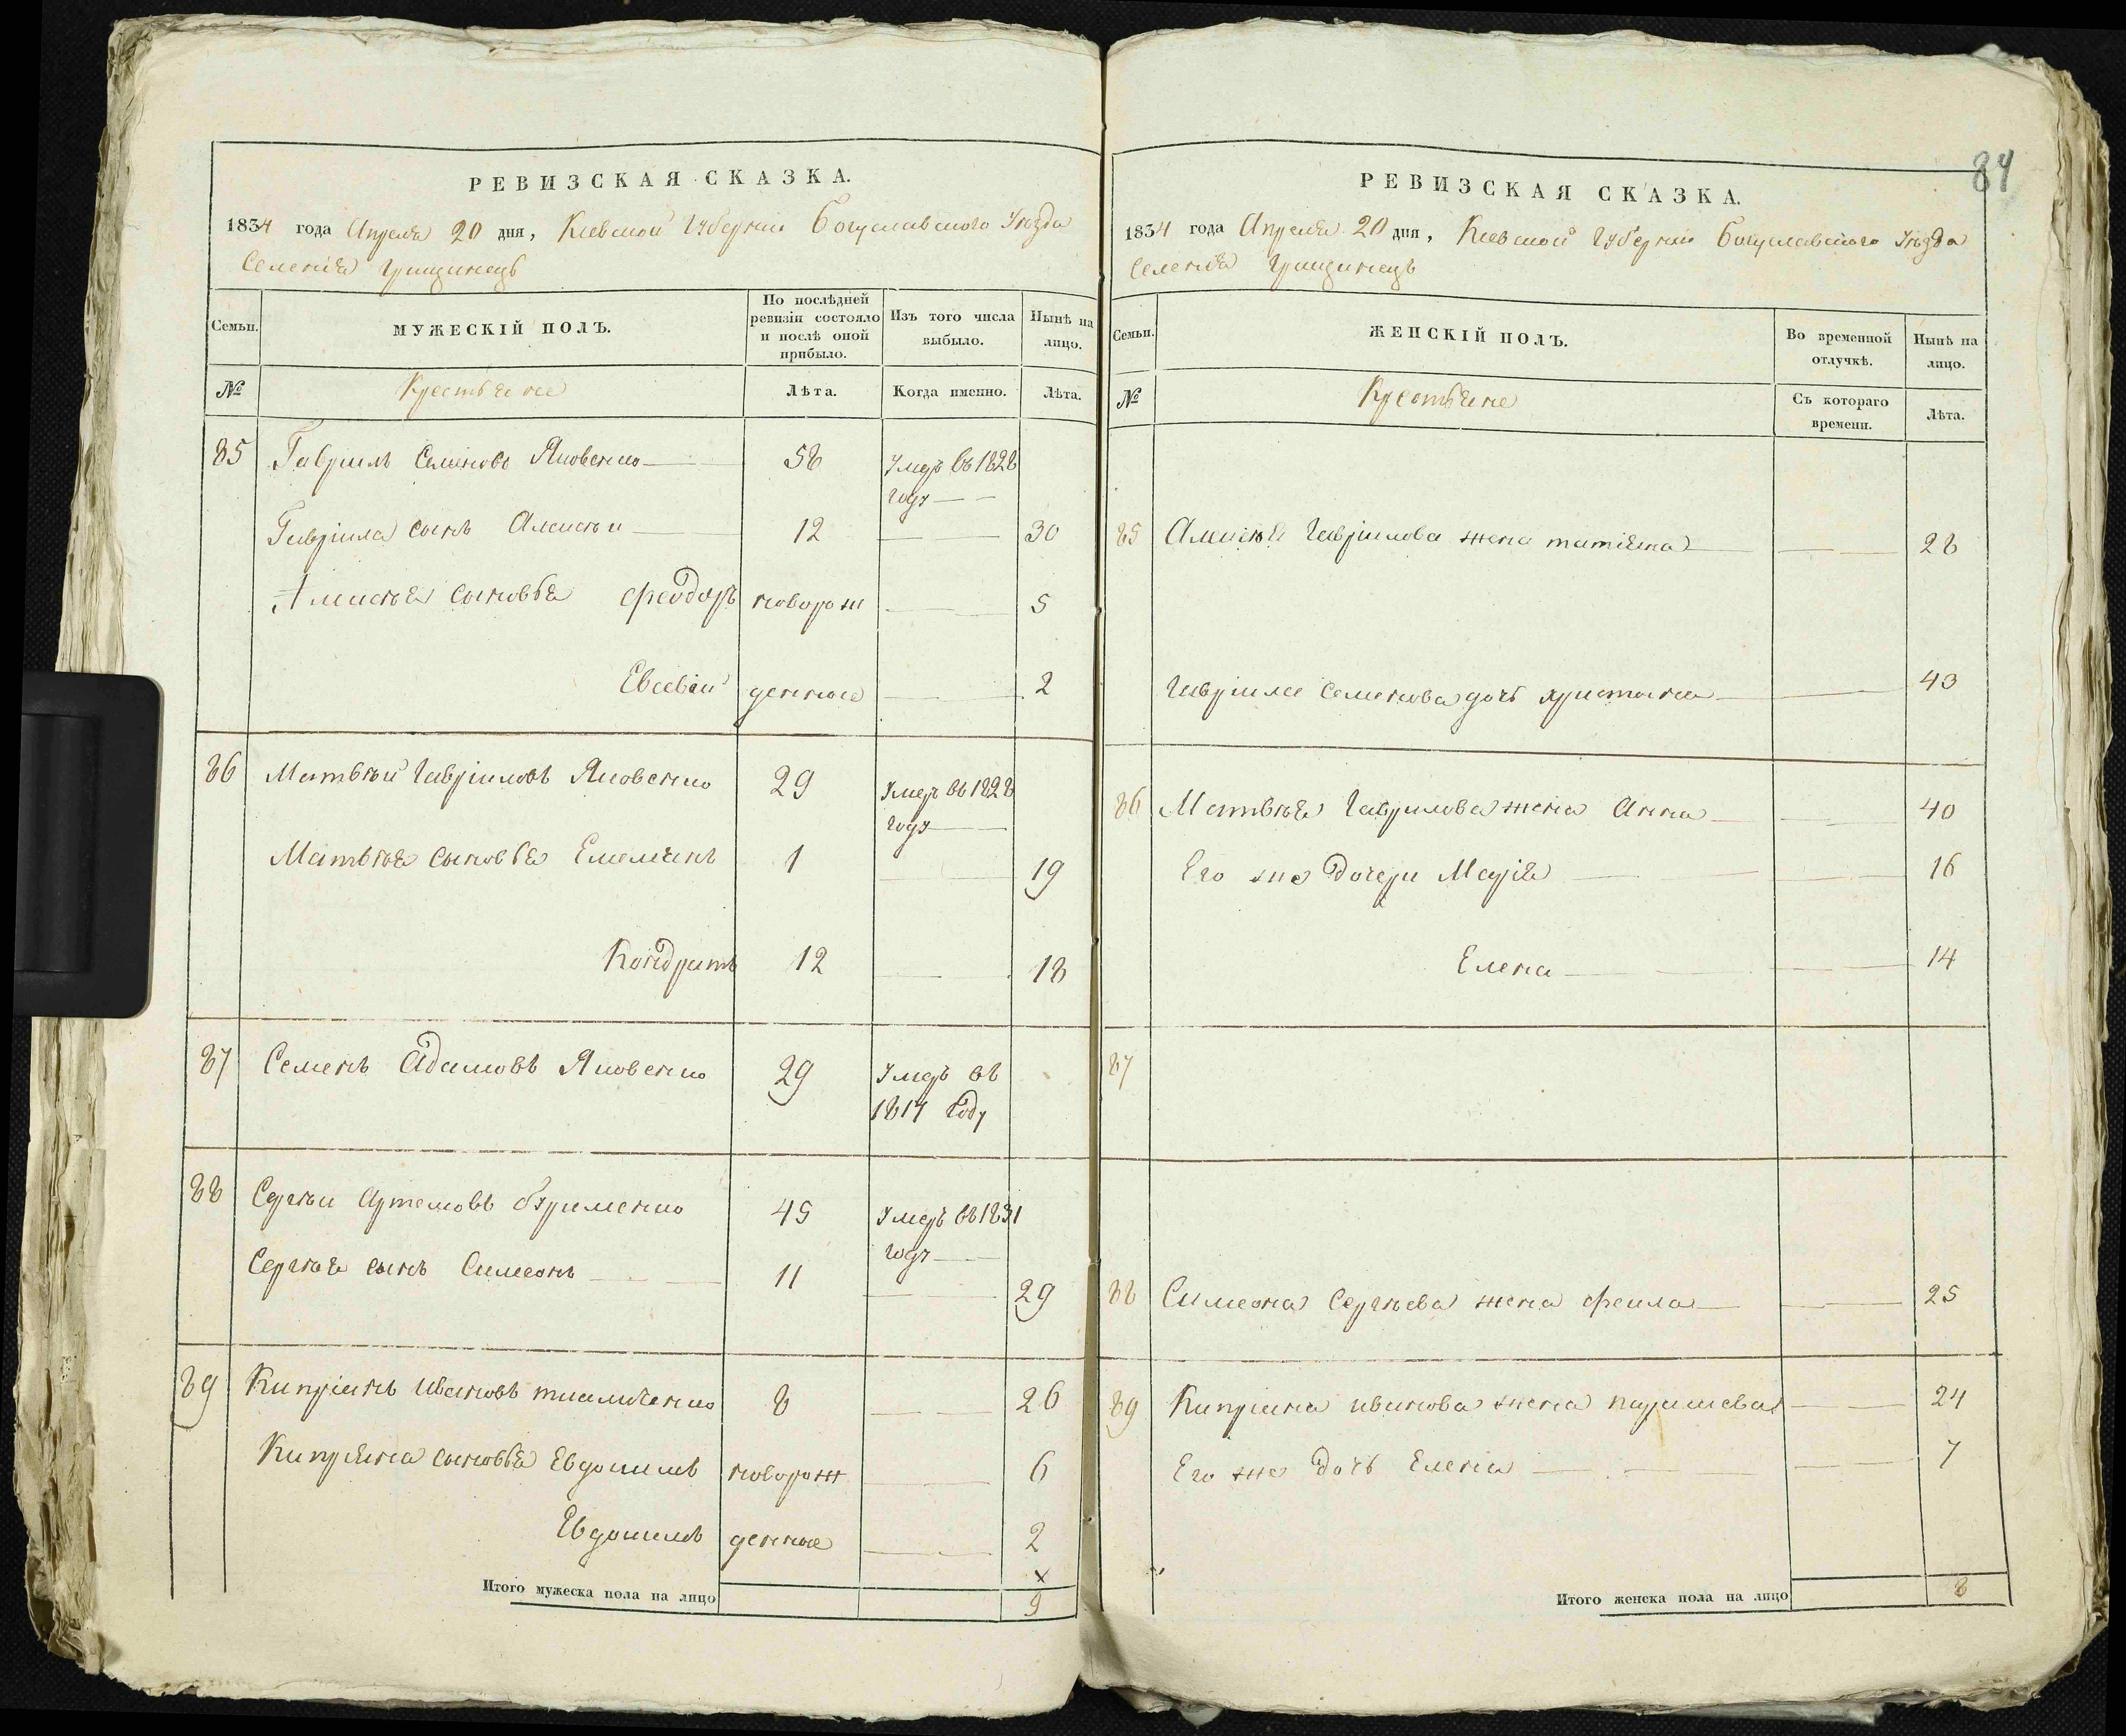 РЕВИЗСКАЯ СКАЗКА.
1834 года Апреля 20 дня, Киевской Губернии Богуславского Уѣзда
Селения Грищинецъ
Семьи.
МУЖЕСКІЙ ПОЛЪ.
По послѣдней ревизіи состояло и послѣ оной прибыло.
Изъ того числа выбыло.
Нынѣ на лицо.
№
Крестьяне
Лѣта.
Когда именно.
Лѣта.
85 Гаврилъ Семеновъ Яковенко 58 Умеръ въ 1828
году
Гавріила сынъ Алексѣи 12 30
Алексѣя сыновья Феодоръ новорож 5
Евсевіи денные 2
86 Матвѣй Гавріиловъ Яковенко 29 Умеръ въ 1828
году
Матвѣя сыновья Емельянъ 1 19
Кондратъ 12 18
87 Семенъ Адамовъ Яковенко 29 Умеръ въ
1817 Году
88 Сергѣи Артемовъ 45 Умеръ въ 1831
году
Сергѣя сынъ Симеонъ 11 29
89 Кипріянъ Ивановъ 8 26
Кипріяна сыновья Евдокимъ новорож 6
Евдокимъ денные 2
х
Итого мужеска пола на лицо 9
84
РЕВИЗСКАЯ СКАЗКА.
1834 года Апреля 20 дня, Киевской Губерніи Богуславского Уѣзда
Селенія Грищинецъ
Семьи.
ЖЕНСКІЙ ПОЛЪ.
Во временной отлучкѣ.
Нынѣ на лицо.
№
Крестьяне
Съ котораго времени.
Лѣта.
85 Алексѣя Гавріилова жена татіяна 28
Гавріила Семенова дочь христина 43
86 Матвѣя Гаврилова жена Анна 40
Его же Дочери Марія 16
Елена 14
87
88 Симеона Сергѣева жена Фекла 25
89 Кипріяна иванова жена параскева 24
Его же Дочь Елена 7
Итого женска пола на лицо 8